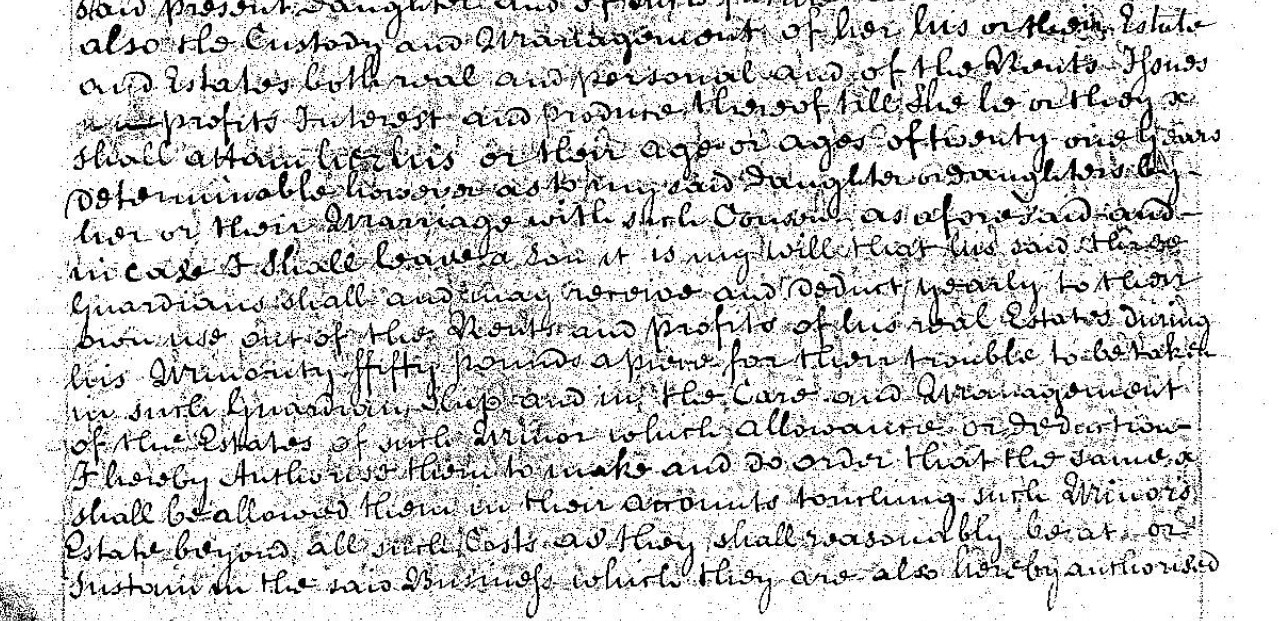 said present daughter and
also the Custody and Management of her his or their Estate
and Estates both real and personal and of the Rents Issues
profits Interest and produce thereof till she he or they x
shall attain her his or their age or ages of twenty one years
Determinable however as to my said daughter or daughters by
her or their Marriage with such Consent as aforesaid and
in case I shall leave a Son it is my will that his said three
Guardians shall and may receive and deduct yearly to their
own use out of the Rents and profits of his real Estates during
his Minority ffifty pounds apiece for their trouble to be taken
in such Guardian Ship and in the Care and Management
of the Estates of such Minor which allowance or deduction
I hereby Authorise them to make and do order that the same x
shall be allowed them in their accounts touching such Minors
Estate beyond all such Costs as they shall reasonably be at or
sustain in the said Business which they are also hereby authorised